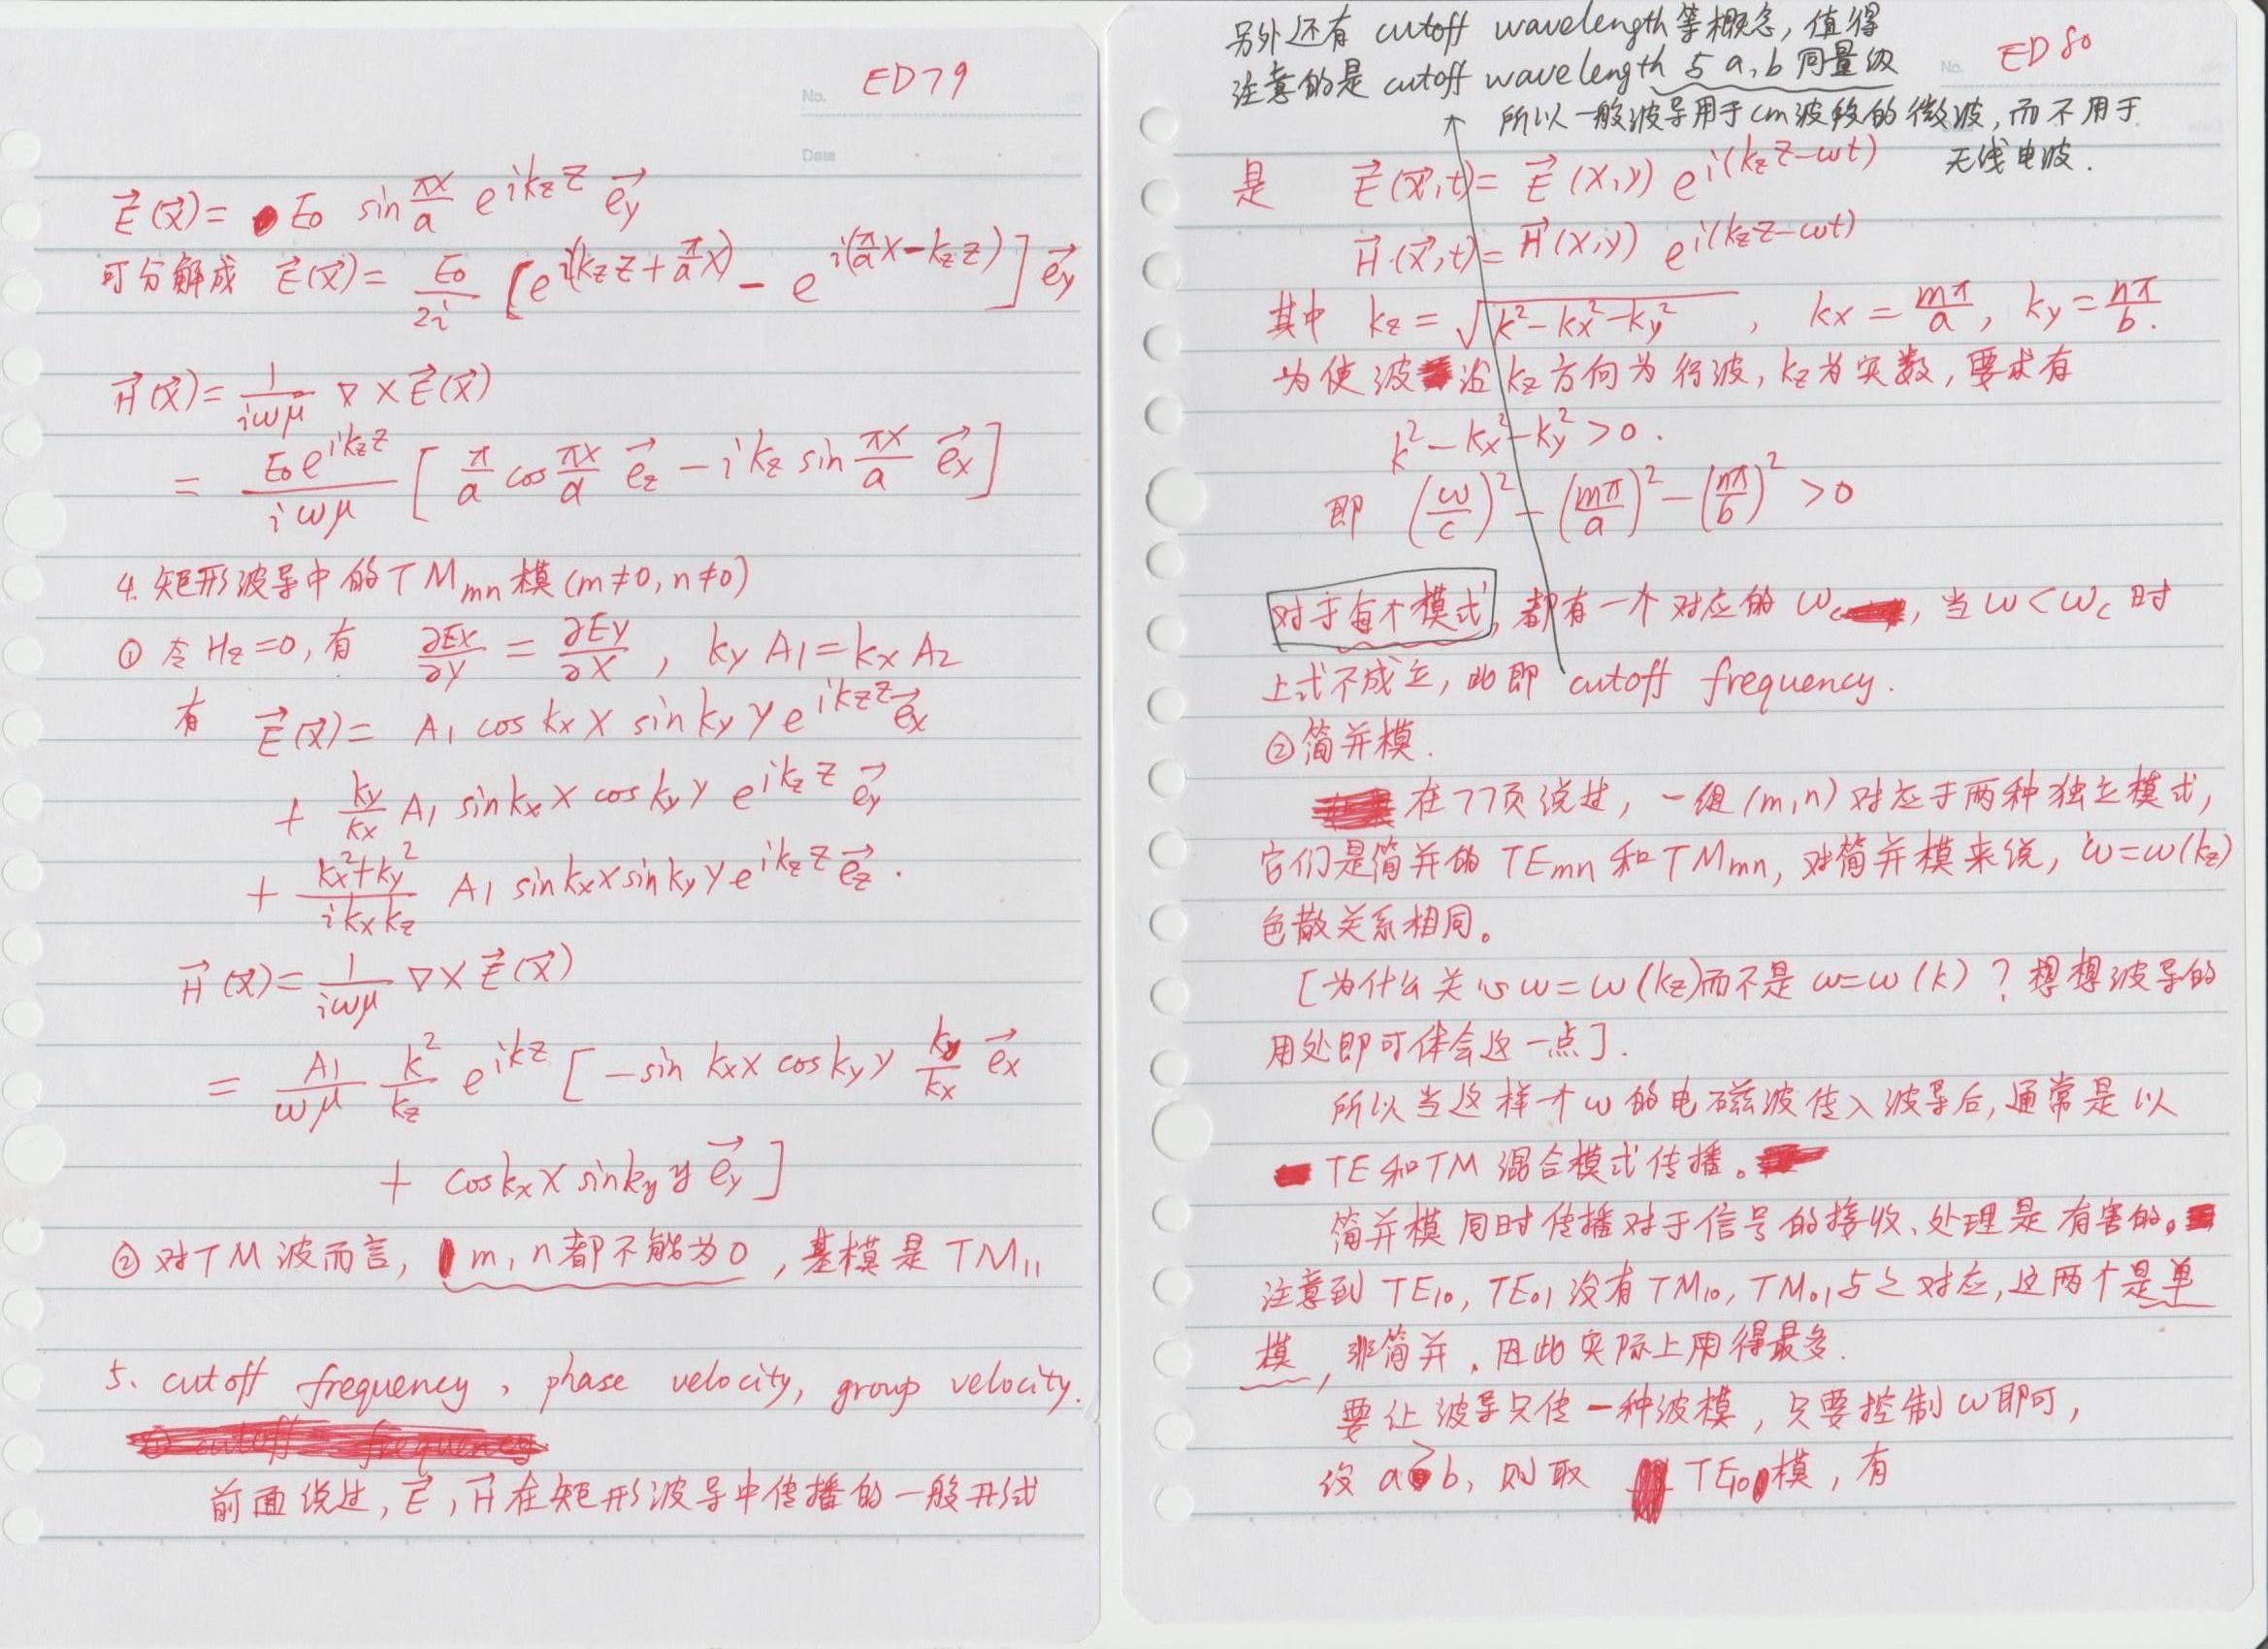 No. ED79
Date
E⃗(x⃗) = E₀ sin πx/a e^{ik_z z} e⃗_y
可分解成 E⃗(x⃗) = E₀/2i [e^{i(k_z z + π/a x)} - e^{i(π/a x - k_z z)}] e⃗_y
H⃗(x⃗) = 1/iωμ ∇×E⃗(x⃗)
= E₀e^{ik_z z}/iωμ [π/a cos πx/a e⃗_z - ik_z sin πx/a e⃗_x]
4. 矩形波导中的TM_mn模(m≠0, n≠0)
① 令H_z=0, 有 ∂Ex/∂y = ∂Ey/∂x, k_y A₁ = k_x A₂
有 E⃗(x⃗) = A₁ cos k_x x sin k_y y e^{ik_z z} e⃗_x
+ k_y/k_x A₁ sin k_x x cos k_y y e^{ik_z z} e⃗_y
+ k_x²+k_y²/ik_x k_z A₁ sin k_x x sin k_y y e^{ik_z z} e⃗_z.
H⃗(x⃗) = 1/iωμ ∇×E⃗(x⃗)
= A₁/ωμ k²/k_z e^{ikz} [-sin k_x x cos k_y y k_y/k_x e⃗_x
+ cos k_x x sin k_y y e⃗_y]
② 对TM波而言, m, n都不能为0, 基模是TM₁₁
5. cutoff frequency, phase velocity, group velocity.
① cutoff frequency
前面说过, E⃗, H⃗在矩形波导中传播的一般形式
另外还有 cutoff wavelength等概念, 值得
No. ED80
注意的是 cutoff wavelength 与 a, b 同量级
所以一般波导用于cm波段的微波, 而不用于
无线电波.
是 E⃗(x⃗,t) = E⃗(x,y) e^{i(k_z z-ωt)}
H⃗(x⃗,t) = H⃗(x,y) e^{i(k_z z-ωt)}
其中 k_z = √(k²-k_x²-k_y²), k_x = mπ/a, k_y = nπ/b.
为使波沿k_z方向为行波, k_z为实数, 要求有
k²-k_x²-k_y²>0.
即 (ω/c)² - (mπ/a)² - (nπ/b)² >0
对于每个模式, 都有一个对应的ω_c, 当ω<ω_c时
上式不成立, 此即 cutoff frequency.
② 简并模.
在77页说过, 一组(m,n)对应于两种独立模式,
它们是简并的TEmn和TMmn, 对简并模来说, ω=ω(k_z)
色散关系相同。
[为什么关心ω=ω(k_z)而不是ω=ω(k)? 想想波导的
用处即可体会这一点].
所以当这样一个ω的电磁波传入波导后, 通常是以
TE和TM混合模式传播。
简并模同时传播对于信号的接收、处理是有害的。
注意到TE₁₀, TE₀₁没有TM₁₀, TM₀₁与之对应, 这两个是单
模, 非简并, 因此实际上用得最多.
要让波导只传一种波模, 只要控制ω即可,
设 a>b, 则取 TE₁₀模, 有